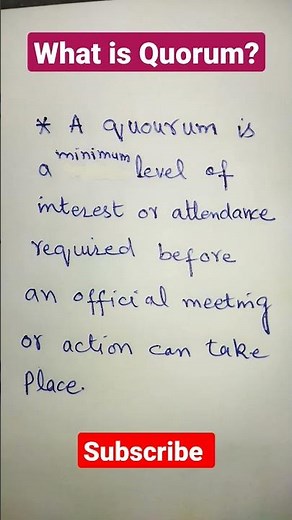 What is Quorum?
* A quourum is
a minimum level of
interest or attendance
required before
an official meeting
or action can take
place.
Subscribe